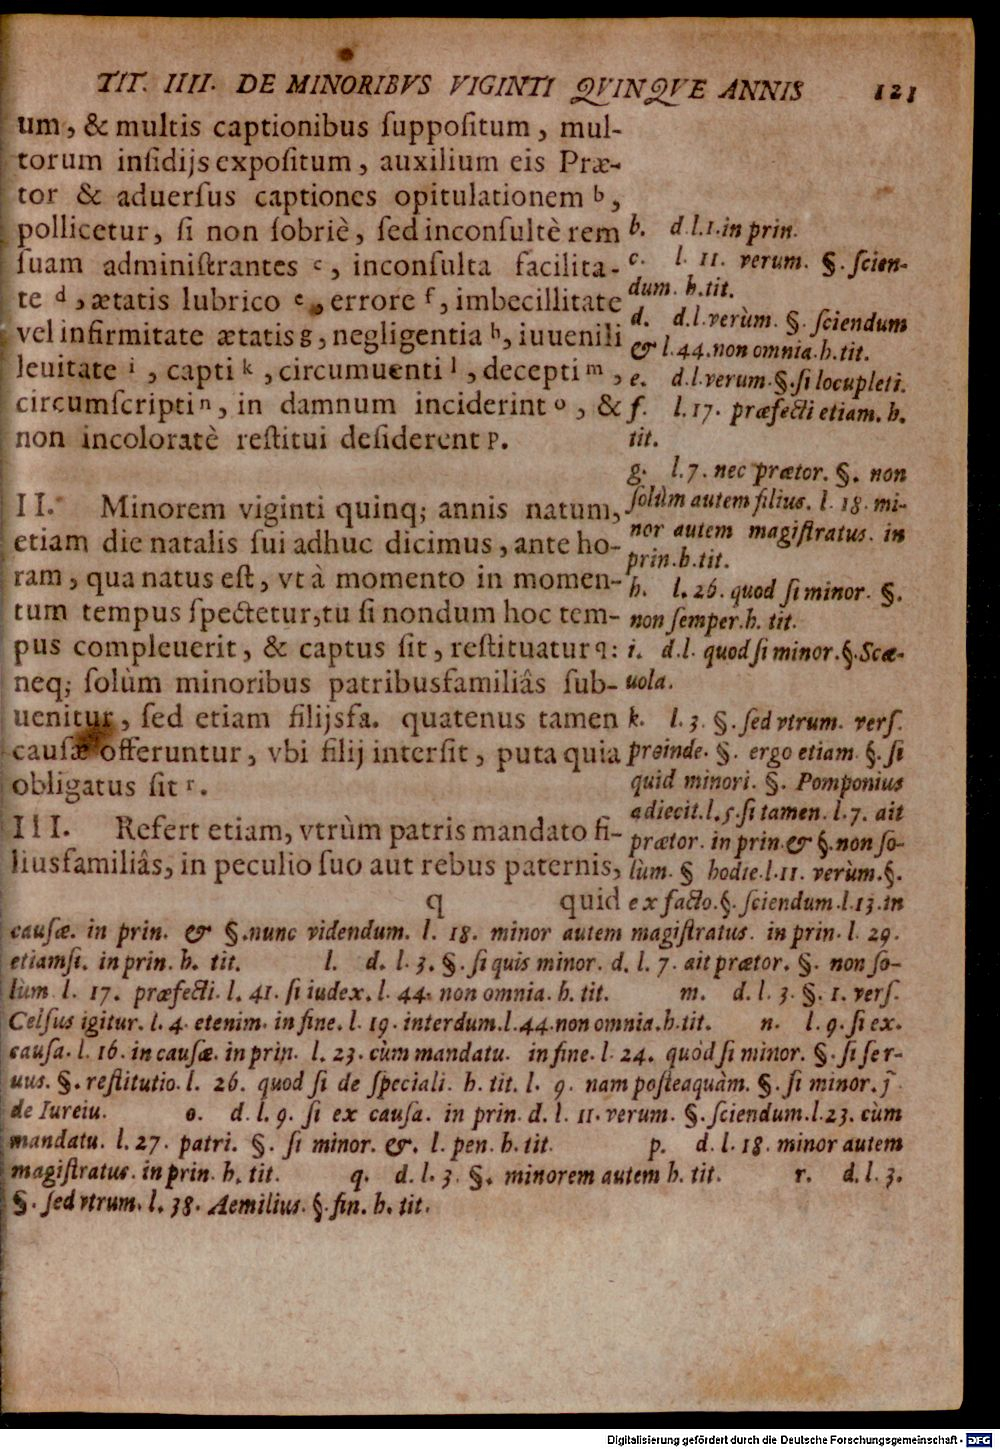 TIT. IIII. DE MINORIBVS VIGINTI QVINQVE ANNIS 121
um, & multis captionibus ſuppoſitum, mul-
torum inſidijs expoſitum, auxilium eis Præ-
tor & aduerſus captiones opitulationem b,
pollicetur, ſi non ſobriè, ſed inconſultè rem
ſuam adminiſtrantes c, inconſulta facilita-
te d, ætatis lubrico e, errore f, imbecillitate
vel infirmitate ætatis g, negligentia h, iuuenili
leuitate i, capti k, circumuenti l, decepti m,
circumſcripti n, in damnum inciderint o, &
non incoloratè reſtitui deſiderent p.
II. Minorem viginti quinq; annis natum,
etiam die natalis ſui adhuc dicimus, ante ho-
ram, qua natus eſt, vt à momento in momen-
tum tempus ſpectetur, tu ſi nondum hoc tem-
pus compleuerit, & captus ſit, reſtituatur q:
neq; ſolùm minoribus patribusfamiliâs ſub-
uenitur, ſed etiam filijsfa. quatenus tamen
cauſæ offeruntur, vbi filij interſit, puta quia
obligatus ſit r.
III. Refert etiam, vtrùm patris mandato fi-
liusfamiliâs, in peculio ſuo aut rebus paternis,
q quid
b. d.l.1.in prin.
c. l. 11. verum. §. ſcien-
dum. h.tit.
d. d.l.verùm. §. ſciendum
& l.44.non omnia.h.tit.
e. d.l.verum.§.ſi locupleti.
f. l.17. præfecti etiam. h.
tit.
g. l.7. nec prætor. §. non
ſolùm autem filius. l. 18. mi-
nor autem magiſtratus. in
prin.h.tit.
h. l.26. quod ſi minor. §.
non ſemper.h. tit.
i. d.l. quod ſi minor.§.Scæ-
uola.
k. l.3. §. ſed vtrum. verſ.
proinde. §. ergo etiam. §. ſi
quid minori. §. Pomponius
adiecit.l.5.ſi tamen. l.7. ait
prætor. in prin.& §.non ſo-
lùm. § hodie.l.11. verùm.§.
ex facto.§. ſciendum.l.13.in
cauſæ. in prin. & §.nunc videndum. l. 18. minor autem magiſtratus. in prin. l. 29.
etiamſi. in prin. h. tit. l. d. l. 3. §. ſi quis minor. d. l. 7. ait prætor. §. non ſo-
lùm. l. 17. præfecti. l. 41. ſi iudex. l. 44. non omnia. h. tit. m. d. l. 3. §. 1. verſ.
Celſus igitur. l. 4. etenim. in fine. l. 19. interdum.l.44.non omnia.h.tit. n. l. 9. ſi ex.
cauſa. l. 16. in cauſæ. in prin. l. 23. cùm mandatu. in fine. l. 24. quòd ſi minor. §. ſi ſer-
uus. §. reſtitutio. l. 26. quod ſi de ſpeciali. h. tit. l. 9. nam poſteaquàm. §. ſi minor. j̃
de Iureiu. o. d. l. 9. ſi ex cauſa. in prin. d. l. 11. verum. §. ſciendum.l.23. cùm
mandatu. l. 27. patri. §. ſi minor. &. l. pen. h. tit. p. d. l. 18. minor autem
magiſtratus. in prin. h. tit. q. d. l. 3. §. minorem autem h. tit. r. d. l. 3.
§. ſed vtrum. l. 38. Aemilius. §. fin. h. tit.
Digitalisierung gefördert durch die Deutsche Forschungsgemeinschaft - DFG